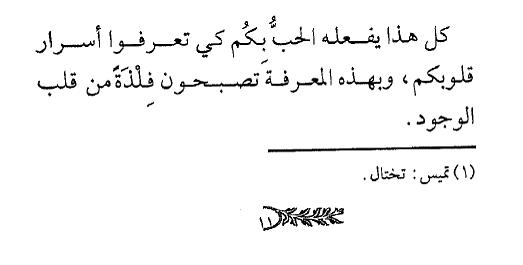 كل هذا يفعله الحبُّ بِكُم كي تعرفوا أسرار
قلوبكم، وبهذه المعرفة تصبحون فِلْذَةً من قلب
الوجود.
(١) تميس: تختال.
١١